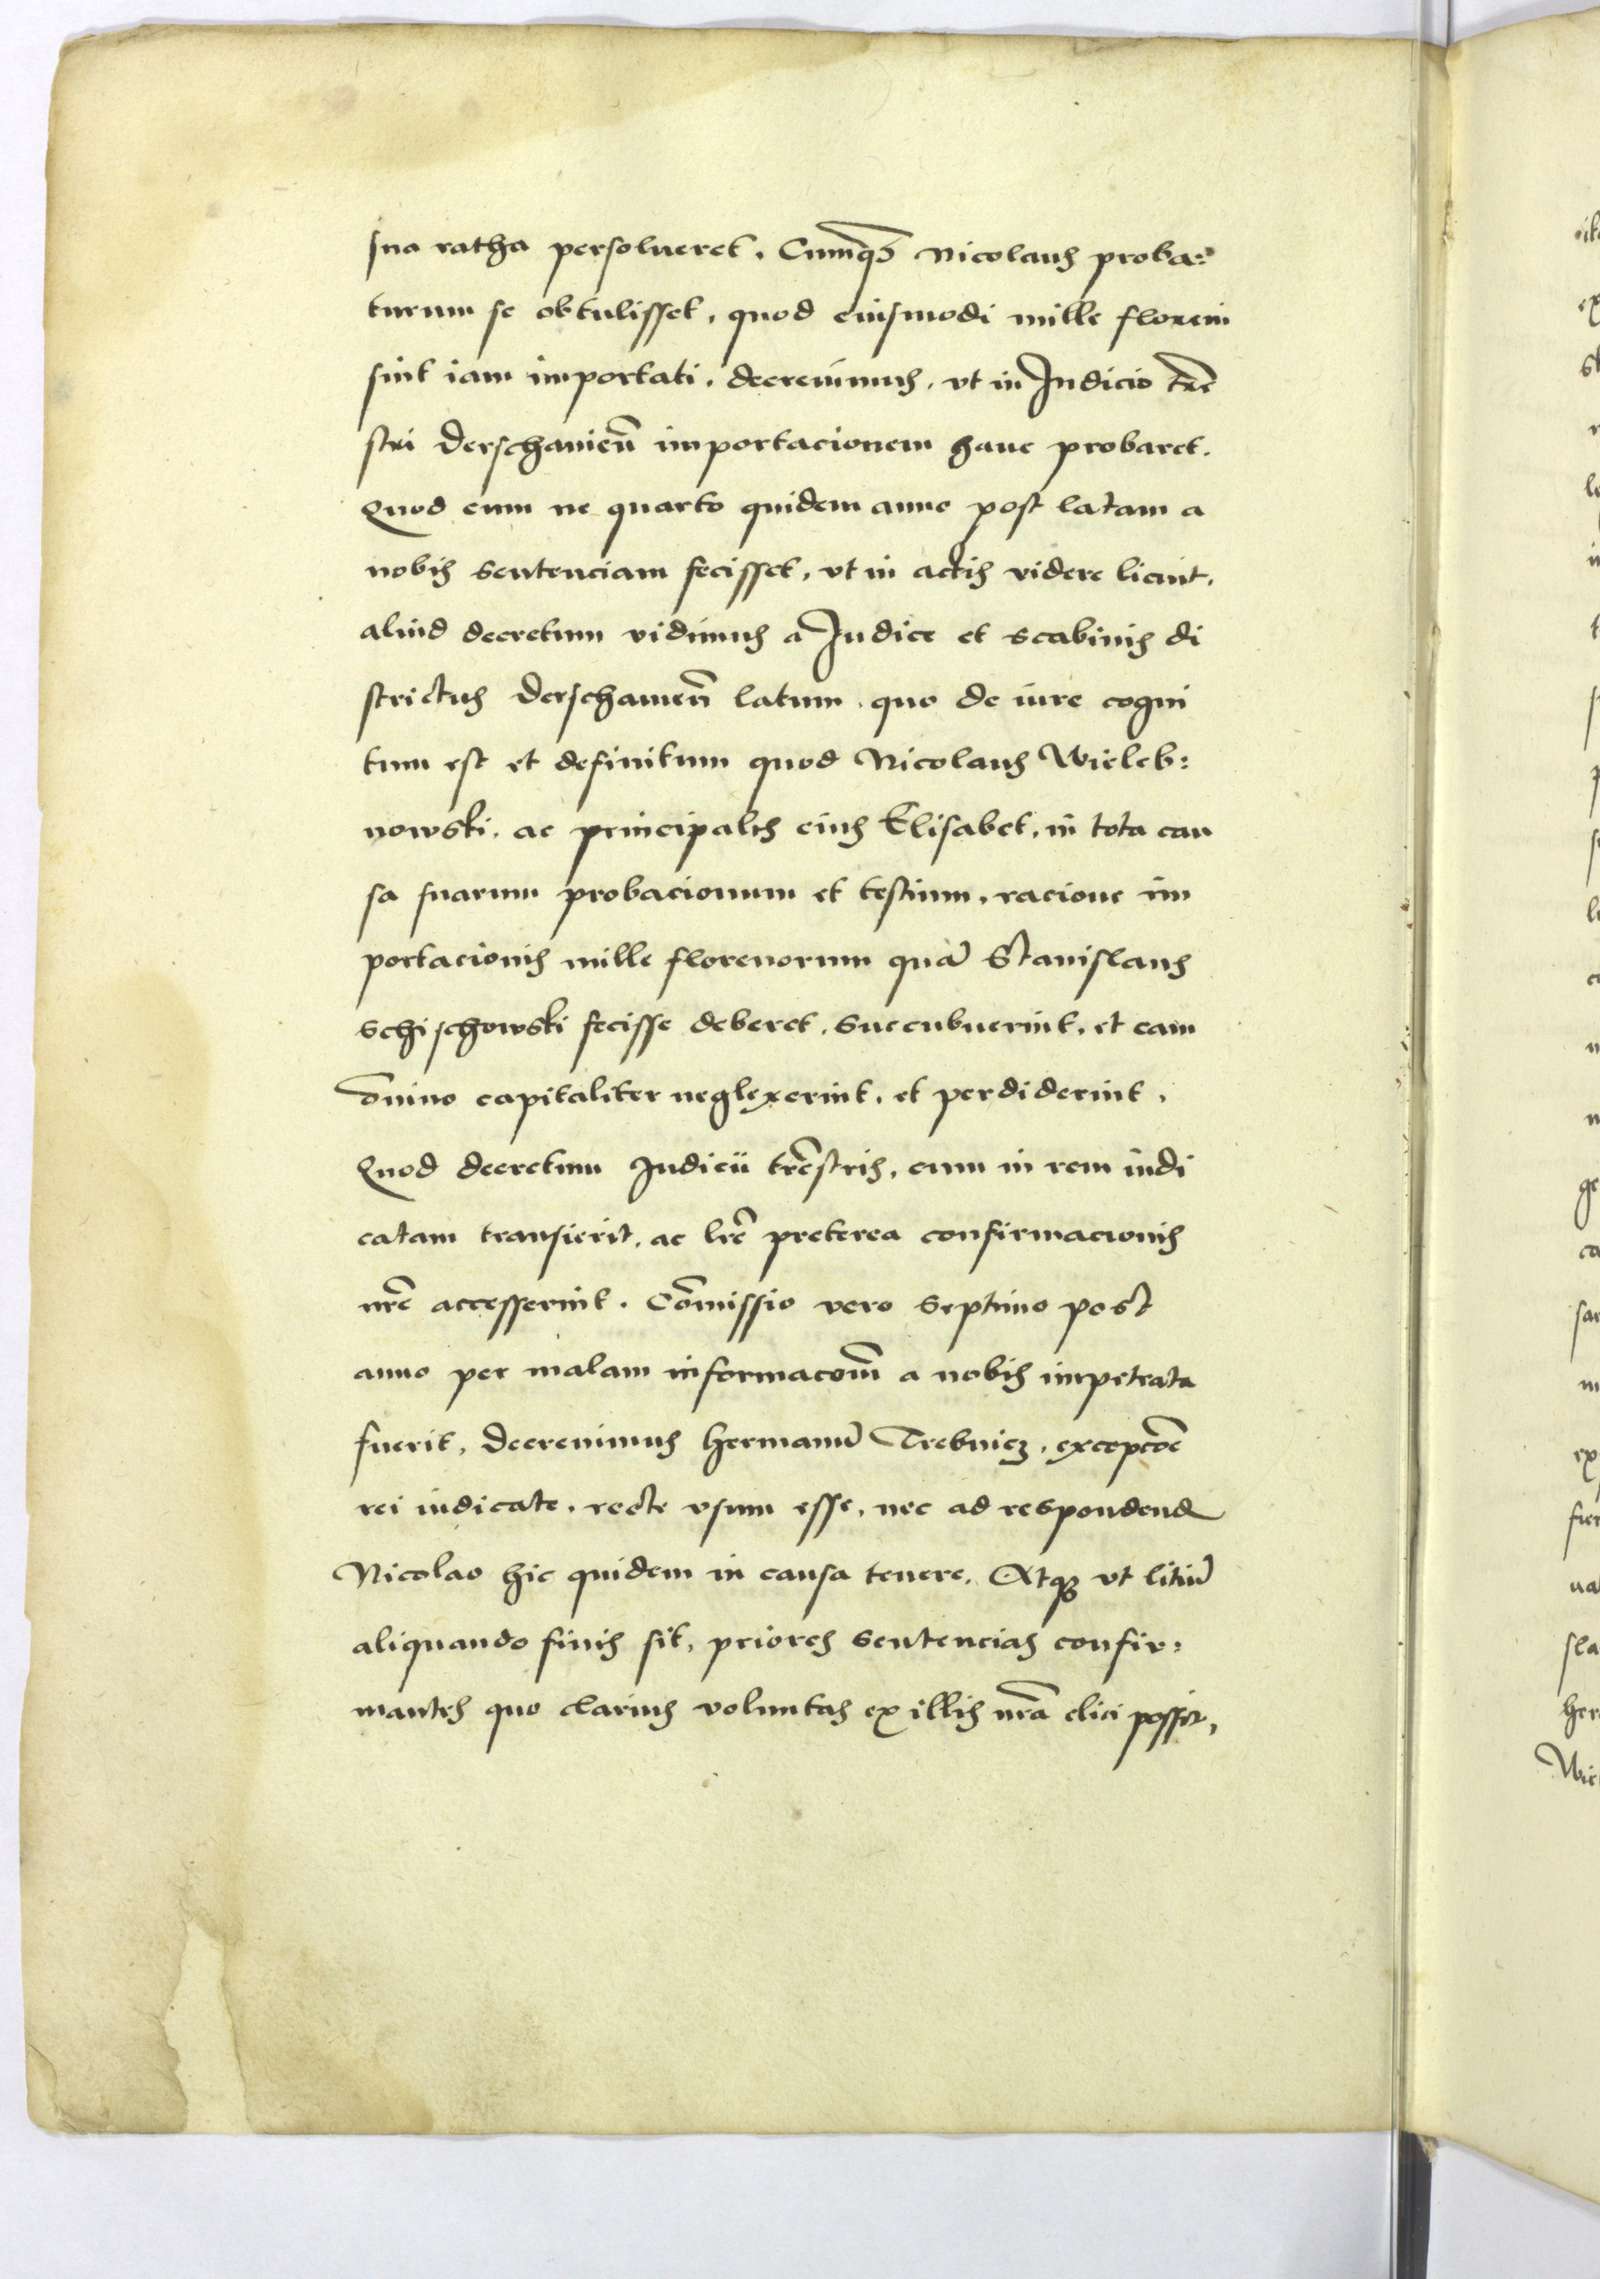 sua ratha persolueret. Cumq̃ Nicolaus proba:
turum se obtulisset, quod eiusmodi mille floreni
sint iam importati, decreuimus, vt in Judicio tr̃e
stri Derschauien̄ importacionem hanc probaret.
Quod cum ne quarto quidem anno post latam a
nobis sentenciam fecisset, vt in actis videre licuit,
aliud decretum vidimus a Judice et scabinis di
strictus Derschauien̄ latum, quo de iure cogni
tum est et definitum quod Nicolaus Wieleb:
nowski, ac principalis eius Elisabet, in tota cau
sa suarum probacionum et testium, racione im
portacionis mille florenorum quā Stanislaus
Schischowski fecisse deberet, succubuerint, et eam
om̄ino capitaliter neglexerint, et perdiderint,
Quod decretum Judicii trēstris, cum in rem iudi
catam transierit, ac lr̃e preterea confirmacionis
nr̃e accesserint. Com̄issio vero septimo post
anno per malam informacom̄ a nobis impetrata
fuerit, decreuimus Hermanū Trebnicz, excepcōe
rei iudicate, recte vsum esse, nec ad respondend
Nicolao hic quidem in causa tenere. Atq; vt litiū
aliquando finis sit, priores sentencias confir:
mantes quo clarius voluntas ex illis nr̃a elici possit,